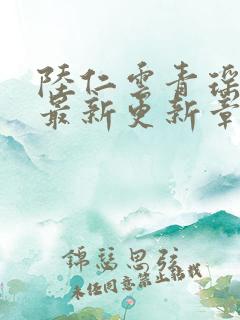 陸仁雲青瑶
最新更新章
錦瑟思弦
未经同意禁止转载